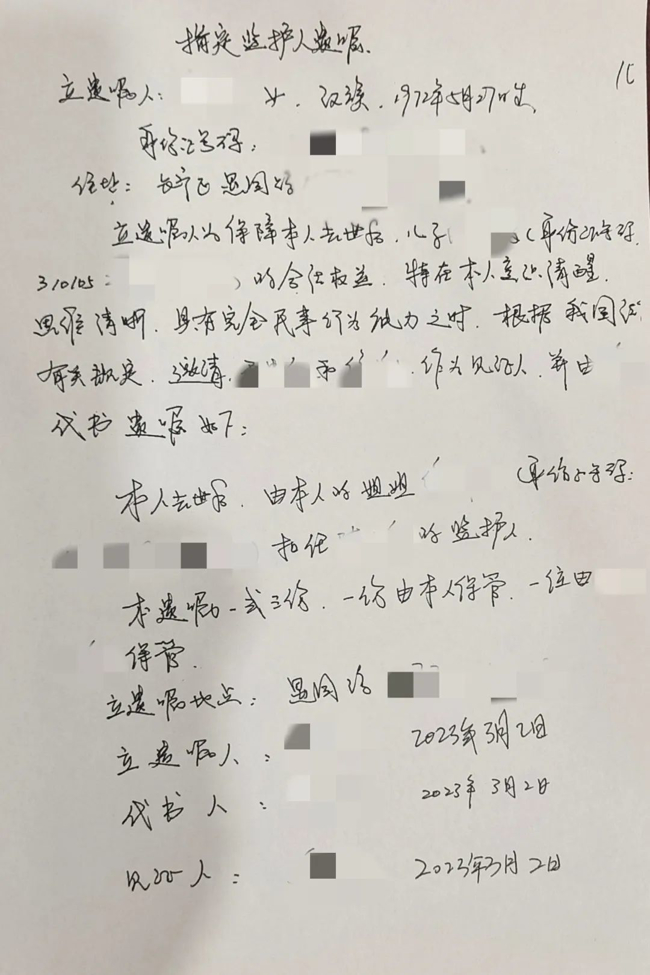 指定监护人遗嘱
立遗嘱人： 女，汉族，1972年5月27日生，
身份证号码：
住址：长宁区 愚园路
立遗嘱人为保障本人去世后，儿子 （身份证号码
310105 ）的合法权益，特在本人意识清醒，
思维清晰，具有完全民事行为能力之时，根据我国法
有关规定，邀请 和 作为见证人，并由
代书遗嘱如下：
本人去世后，由本人的姐姐 （身份证号码：
担任 的监护人。
本遗嘱一式三份，一份由本人保管，一份由
保管。
立遗嘱地点：愚园路
立遗嘱人： 2023年3月2日
代书人： 2023年3月2日
见证人： 2023年3月2日